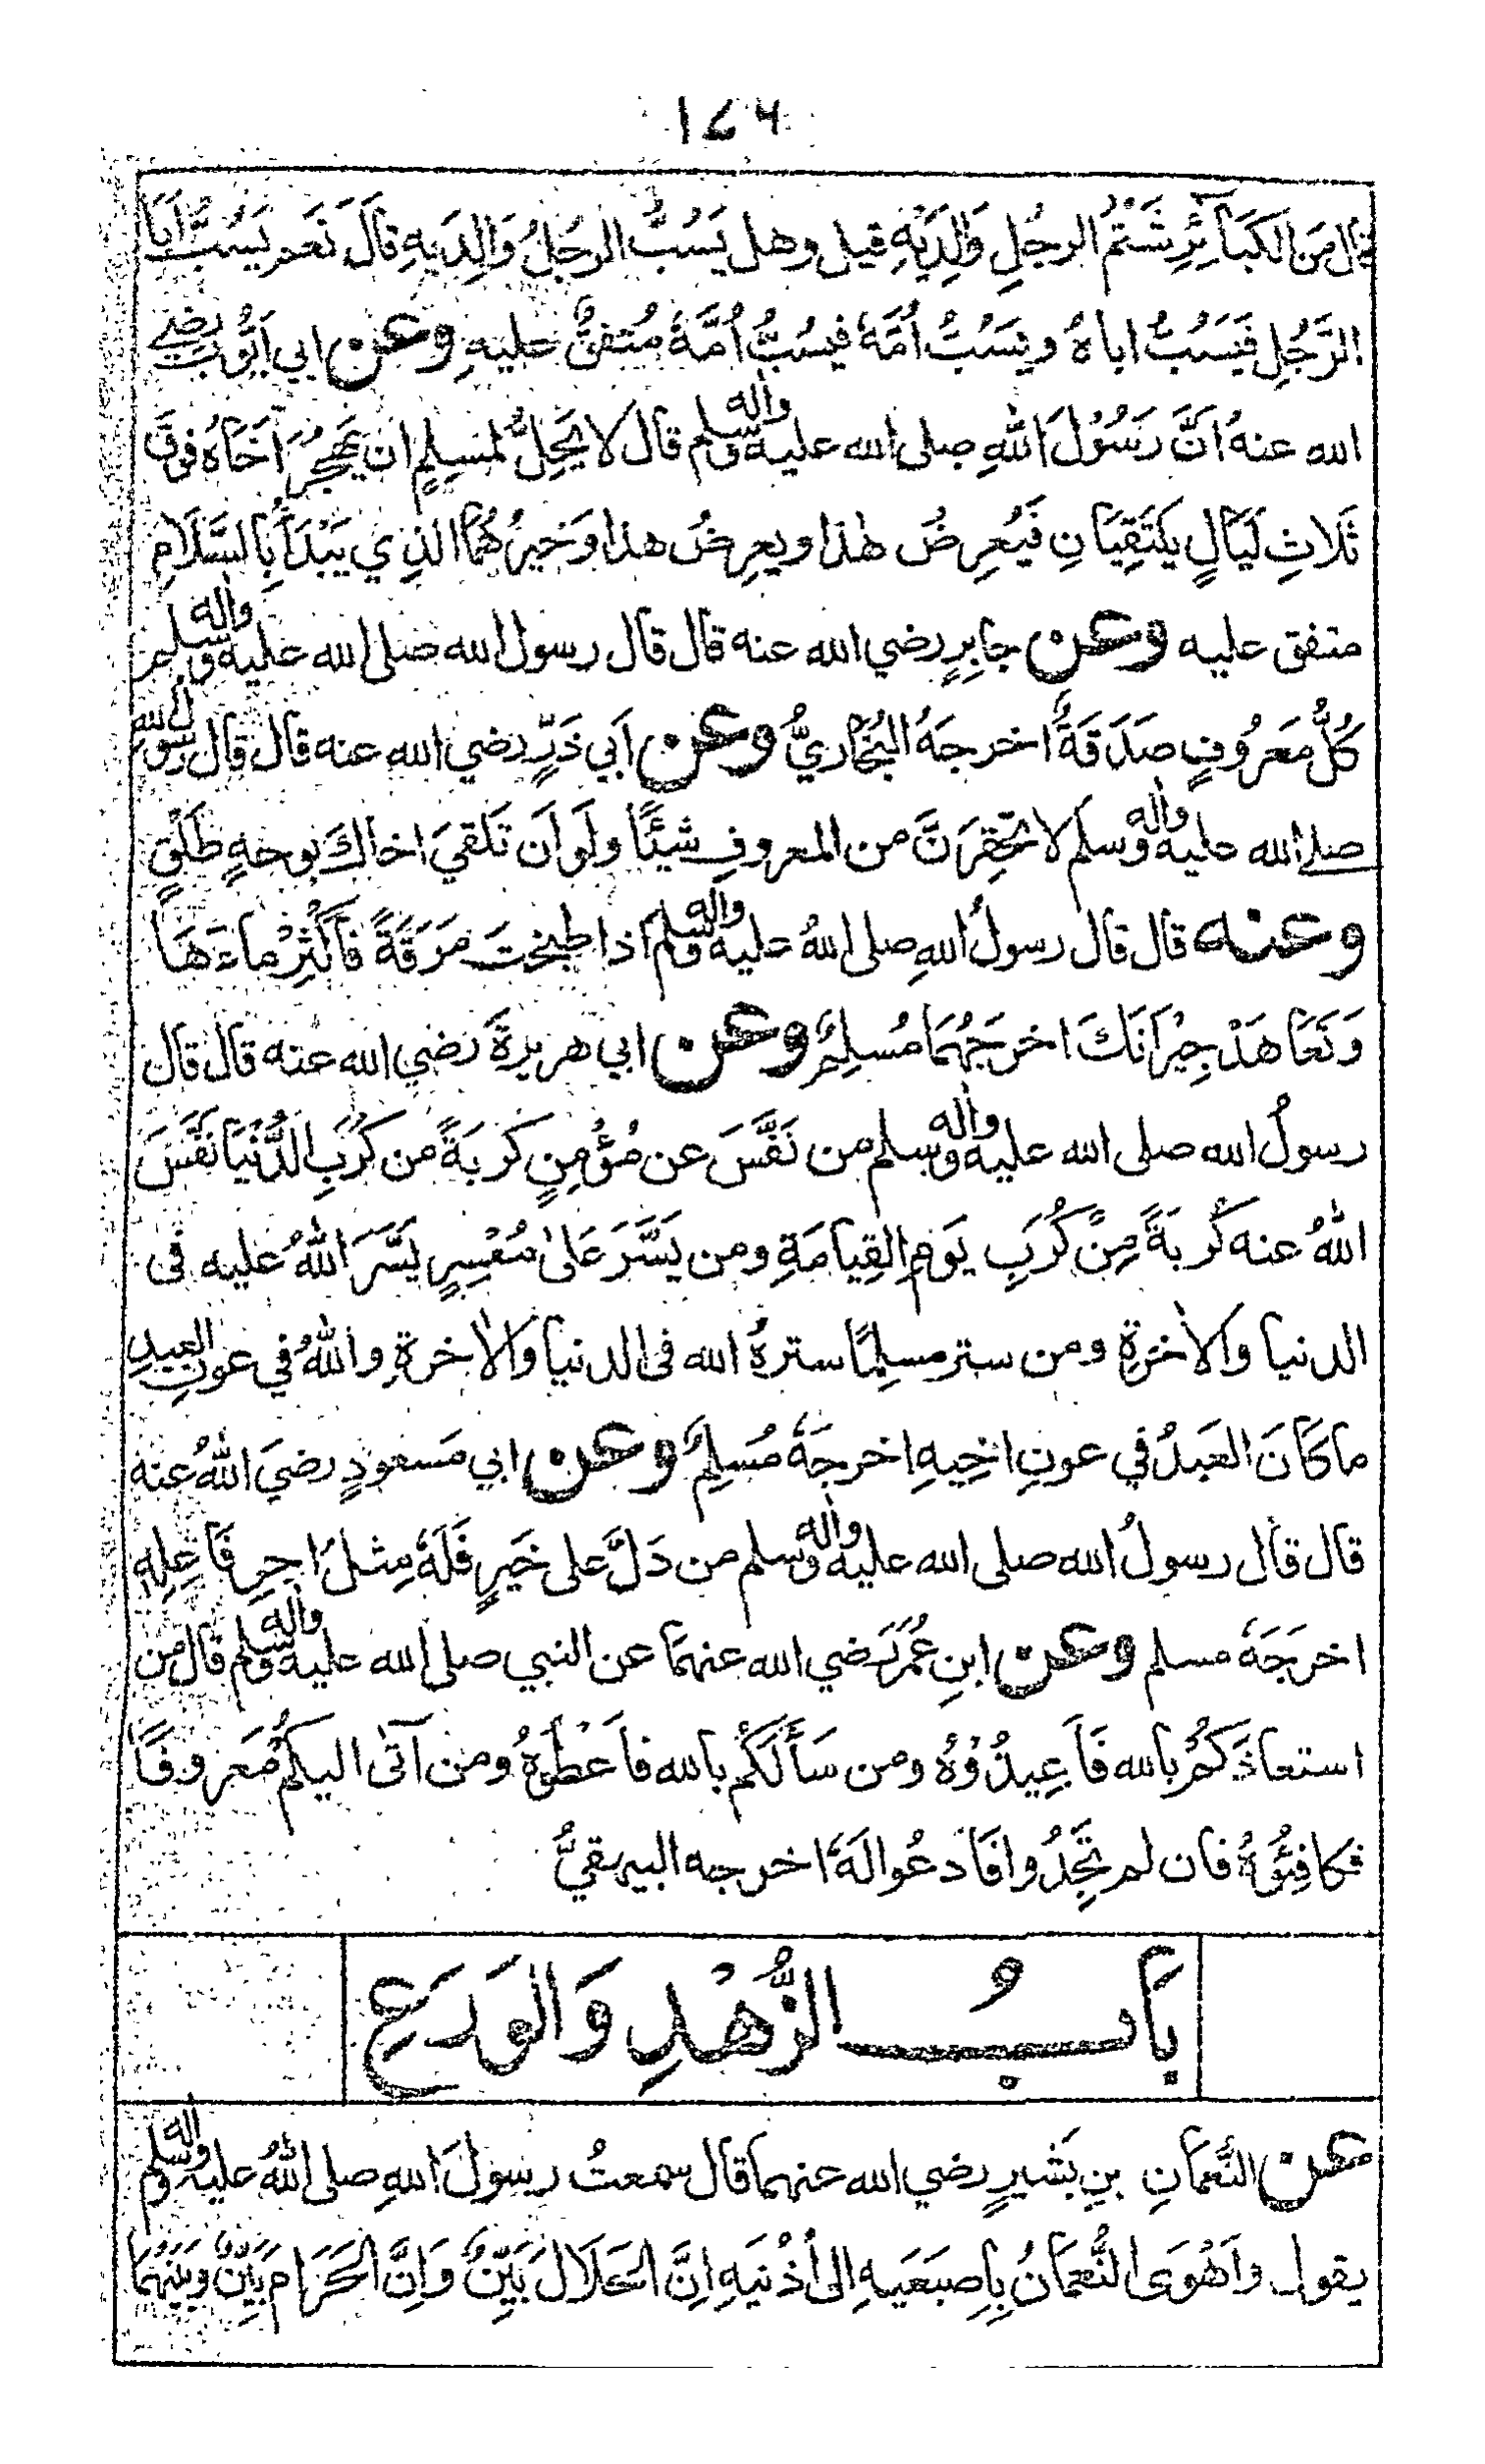 قال من الكبآئر شَتْمُ الرجُلِ وَالِدَيْهِ قيل وهل يَسُبُّ الرجُلُ وَالِدَيهِ قالَ نَعم يَسُبُّ اَبَا
الرَّجُلِ فَيَسُبُّ اباهُ ويَسُبُّ اُمَّهٗ فيسُبُّ اُمَّهٗ مُتفقٌ عليهِ وعن ابي اَيُّوبَ رضي
الله عنهُ انَّ رَسُوْلَ اللّٰهِ صلى الله عليه واٰله وسلم قال لا يَحِلُّ لمسِلمٍ ان يَهجُرَ اَخَاهُ فوقَ
ثَلاثِ لَيَالٍ يلتَقِيَانِ فَيُعرِضُ هٰذا ويعرِضُ هذا وَخَيرُهُمَا الذِي يَبْدَأُ بِالسَّلَامِ
متفق عليه وعن جابِرٍ رضي الله عنه قال قال رسول الله صلى الله عليه واٰله وسلم
كُلُّ مَعرُوفٍ صَدَقَةٌ اخرجهُ البُخَاريُّ وعن اَبي ذَرٍّ رضي الله عنه قال قال رسولُ الله
صلى الله عليه واٰله وسلم لا تَحقِرَنَّ من المعروفِ شيئًا ولَو اَن تَلقيَ اخاكَ بوجهٍ طَلْقٍ
وعنه قال قال رسولُ اللهِ صلى اللهُ عليه واٰله وسلم اذا طبختَ مَرَقَةً فاَكْثِرْ ماءَهَا
وَتَعَاهَدْ جِيْرَانَكَ اخرجَهُمَا مُسلِمٌ وعن ابي هريرةَ رَضي الله عنه قال قال
رسولُ الله صلى الله عليه واٰله وسلم من نَفَّسَ عن مُؤْمِنٍ كُربَةً من كُرَبِ الدُّنْيَا نَفَّسَ
اللّٰهُ عنه كُربَةً مِنْ كُرَبِ يَومِ القِيامَةِ ومن يَسَّرَ عَلىٰ مُعْسِرٍ يَسَّرَ اللّٰهُ عليه فى
الدنيا والاٰخرةِ ومن ستر مسلِمًا سترهُ الله فى الدنيا والاٰخرةِ واللّٰهُ في عونِ العبدِ
ما كَانَ العَبدُ في عونِ اخِيهِ اخرجهٗ مُسْلِمٌ وعن ابي مَسعودٍ رضيَ اللّٰهُ عنهُ
قال قال رسولُ الله صلى الله عليه واٰله وسلم من دَلَّ على خَيرٍ فَلَهٗ مِثلُ اجرِ فَاعِلِهِ
اخرَجَهٗ مسلم وعن ابنِ عُمَرَ رَضي الله عنهمَا عن النبي صلى الله عليه واٰله وسلم قال من
استعاذَكُم بالله فَاَعِيذُوْهُ ومن سَأَلَكُم بالله فاَعْطُوهُ ومن آتى اليكُم مَعروفًا
فكافِئُوهُ فان لم تَجِدُوا فَادعُوا لَهٗ اخرجه البيهقيُّ
بَابُ الزُّهْدِ وَالوَرَعِ
عن النُّعمَانِ بنِ بَشيرٍ رضي الله عنهما قال سمعتُ رسُولَ اللهِ صلى اللّٰهُ عليه واٰله وسلم
يقول واَهْوَى النُّعمَانُ بِاِصبَعَيهِ الى اُذْنَيهِ اِنَّ الحَلَالَ بَيِّنٌ وَاِنَّ الحَرَامَ بَيِّنٌ وبَينَهُمَا